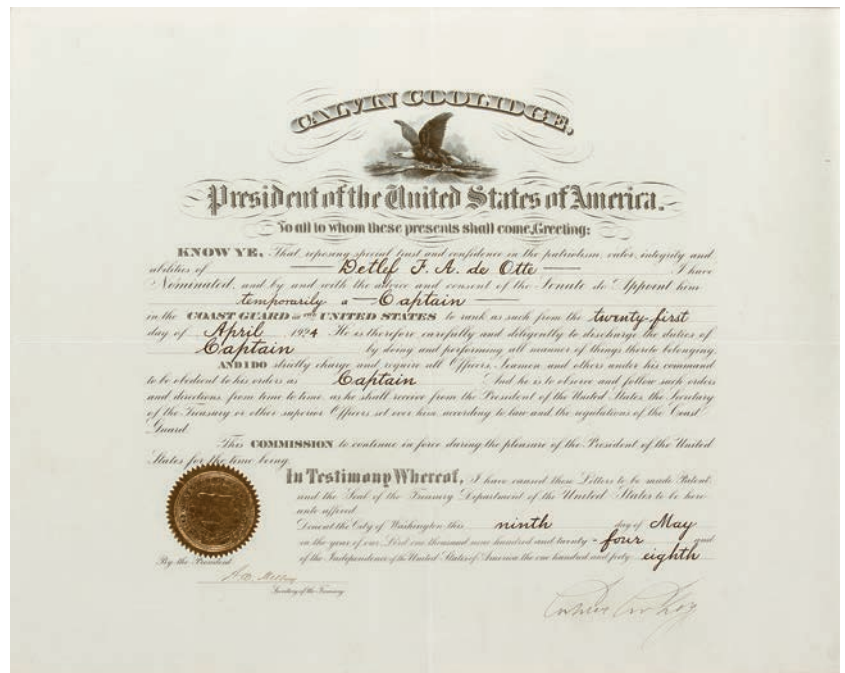 CALVIN COOLIDGE,
President of the United States of America.
To all to whom these presents shall come, Greeting:
KNOW YE, That reposing special trust and confidence in the patriotism, valor, integrity and
abilities of Detlef F. A. de Otte I have
Nominated, and by and with the advice and consent of the Senate do Appoint him
temporarily a Captain
in the COAST GUARD of the UNITED STATES to rank as such from the twenty-first
day of April 1924 He is therefore carefully and diligently to discharge the duties of
Captain by doing and performing all manner of things thereto belonging.
AND I DO strictly charge and require all Officers, Seamen and others under his command
to be obedient to his orders as Captain And he is to observe and follow such orders
and directions from time to time, as he shall receive from the President of the United States, the Secretary
of the Treasury or other superior Officers set over him, according to law and the regulations of the Coast
Guard.
This COMMISSION to continue in force during the pleasure of the President of the United
States for the time being.
In Testimony Whereof, I have caused these Letters to be made Patent
and the Seal of the Treasury Department of the United States to be here
unto affixed
Done at the City of Washington this ninth day of May
in the year of our Lord one thousand nine hundred and twenty-four and
of the Independence of the United States of America the one hundred and forty eighth
By the President
A. W. Mellon
Secretary of the Treasury.
Calvin Coolidge